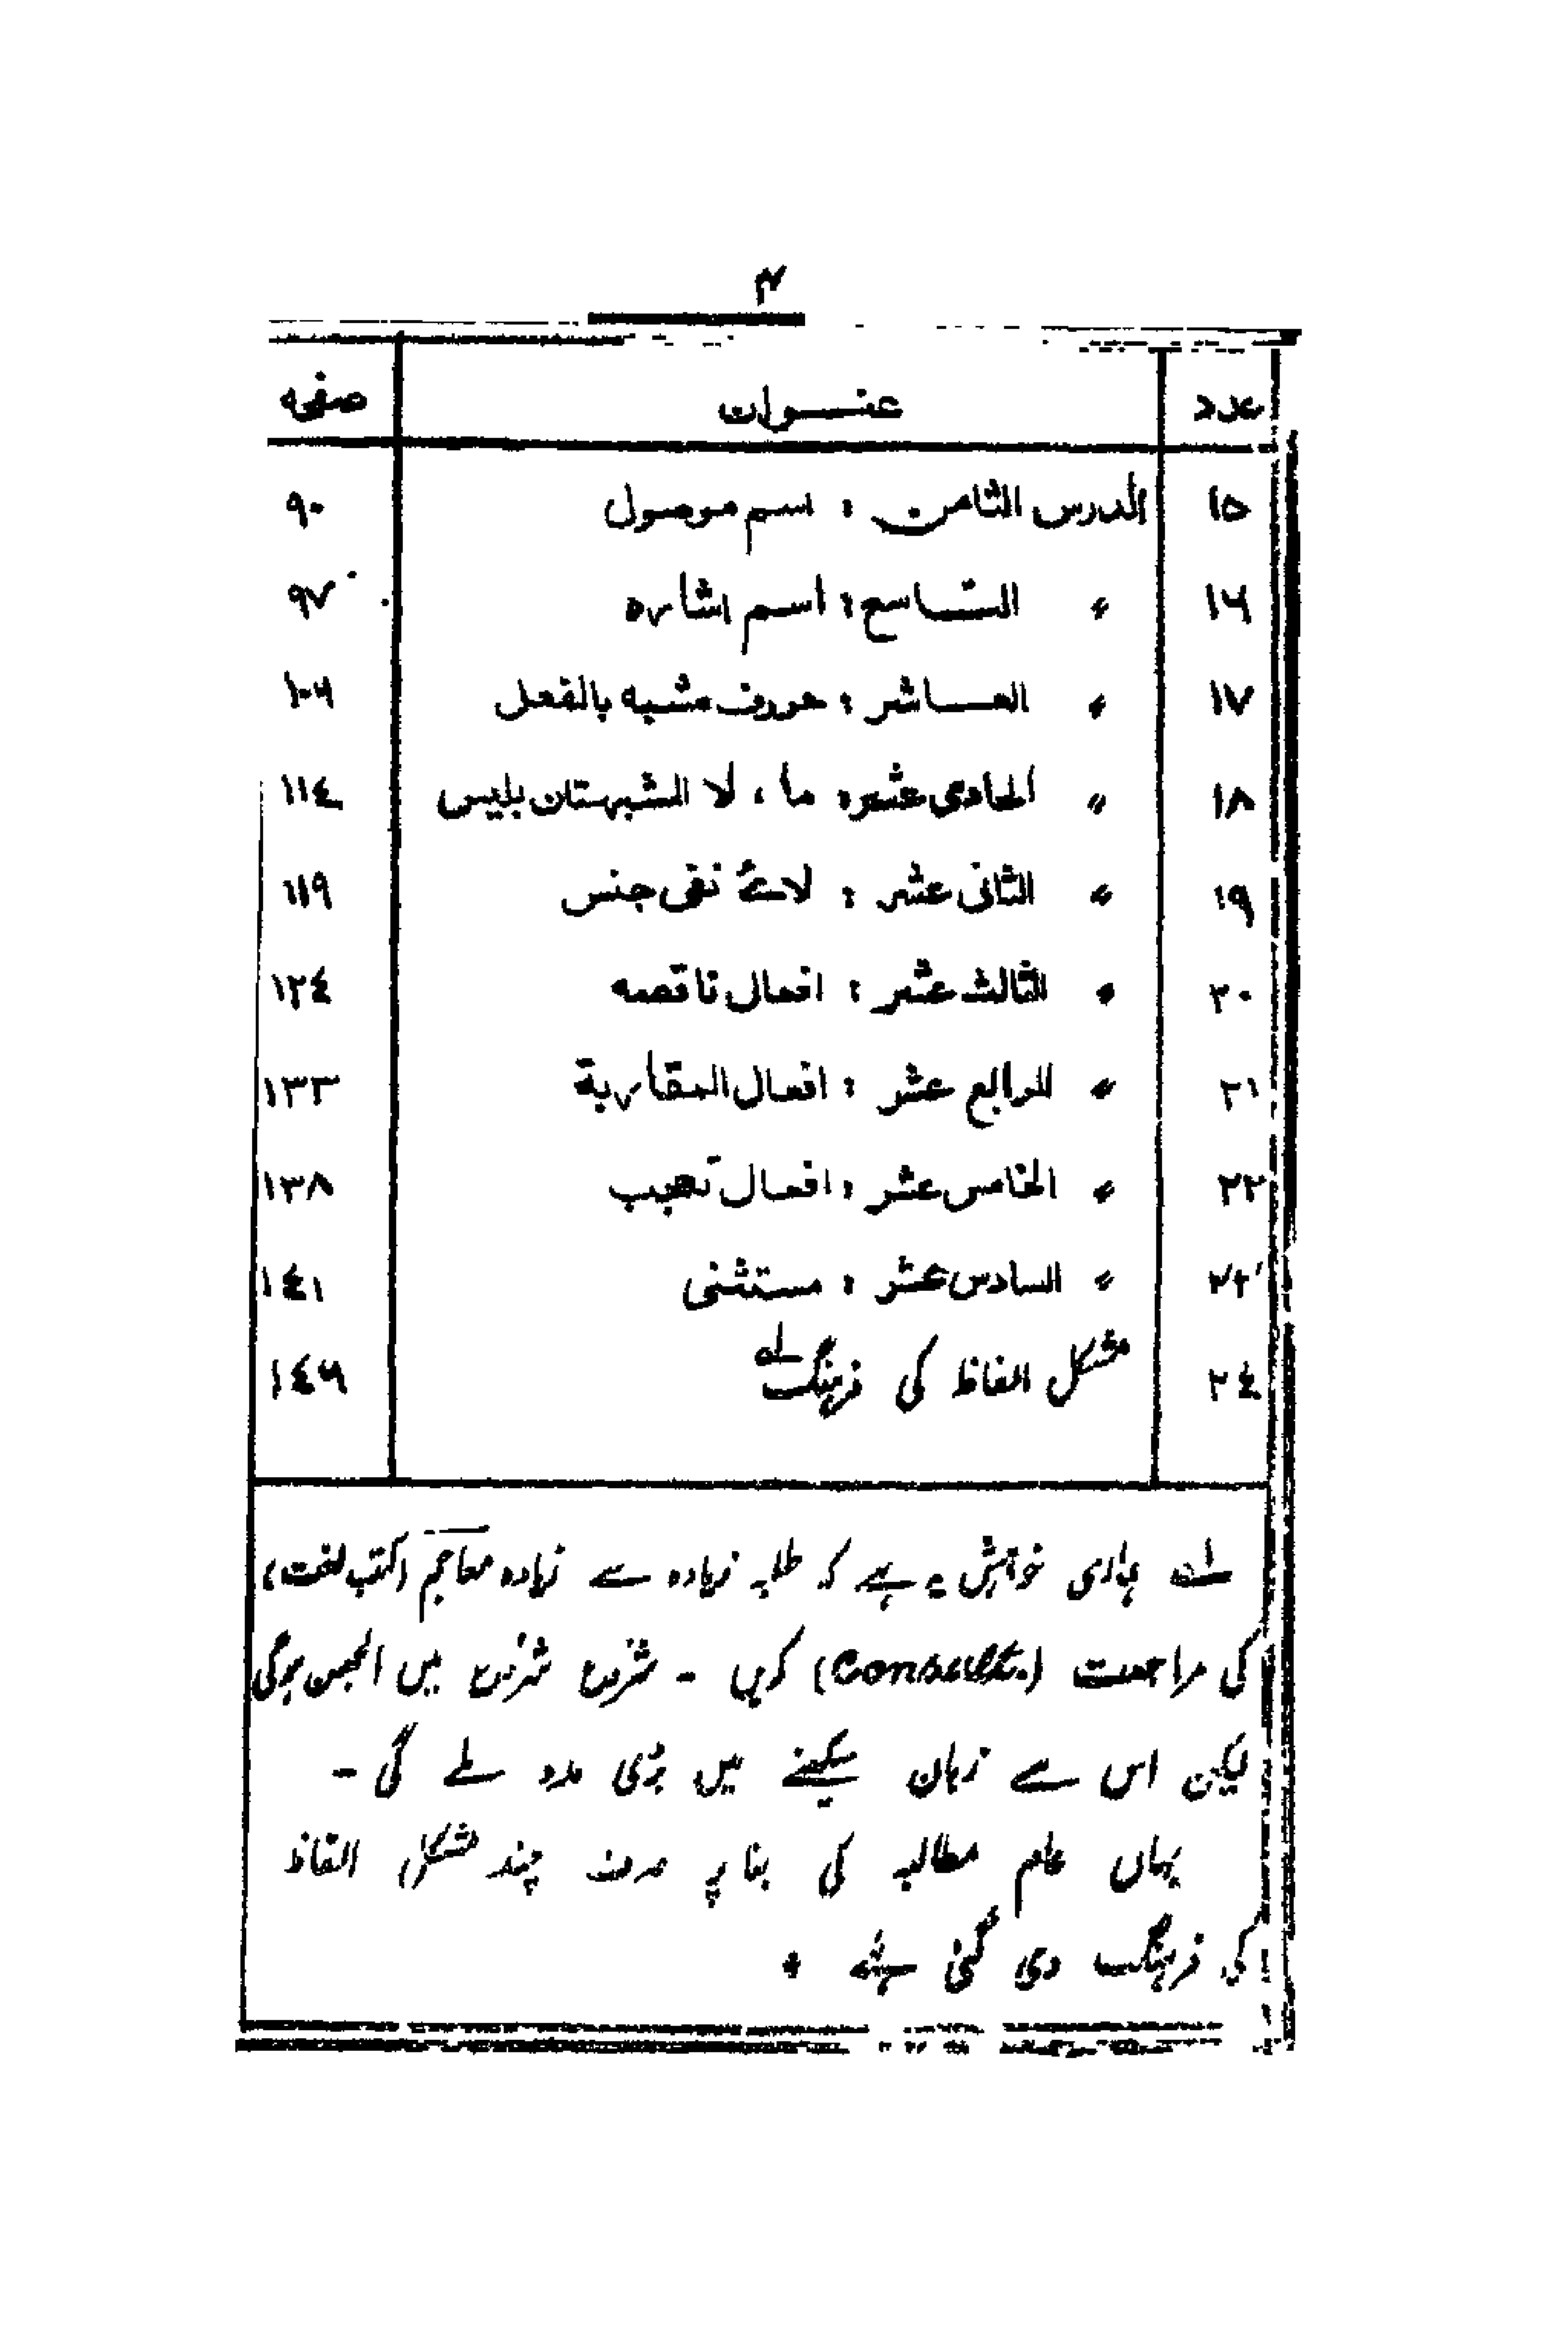 ۴
عدد عنوان صفحه
۱۵ الدرس الثامن : اسم موصول ۹۰
۱۶ 〃 التاسع : اسم اشاره ۹۷
۱۷ 〃 العاشر : حروف مشبه بالفعل ۱۰۶
۱۸ 〃 الحادی عشر : ما ، لا المشبهتان بلیس ۱۱٤
۱۹ 〃 الثانی عشر : لائے نفی جنس ۱۱۹
۲۰ 〃 الثالث عشر : افعال ناقصه ۱۲٤
۲۱ 〃 الرابع عشر : افعال المقاربة ۱۳۳
۲۲ 〃 الخامس عشر : افعال تعجب ۱۳۸
۲۳ 〃 السادس عشر : مستثنی ۱٤۱
۲٤ مشکل الفاظ کی فرہنگ ؎۱ ۱٤۶
؎۱ ہماری خواہش یہ ہے کہ طلبہ زیادہ سے زیادہ معاجم (کتب لغت)
کی مراجعت (Consult) کریں ۔ شروع شروع میں الجھن ہوگی
لیکن اس سے زبان سیکھنے میں بڑی مدد ملے گی ۔
یہاں عام مطالبہ کی بنا پر صرف چند مشکل الفاظ
کی فرہنگ دی گئی ہے ۔